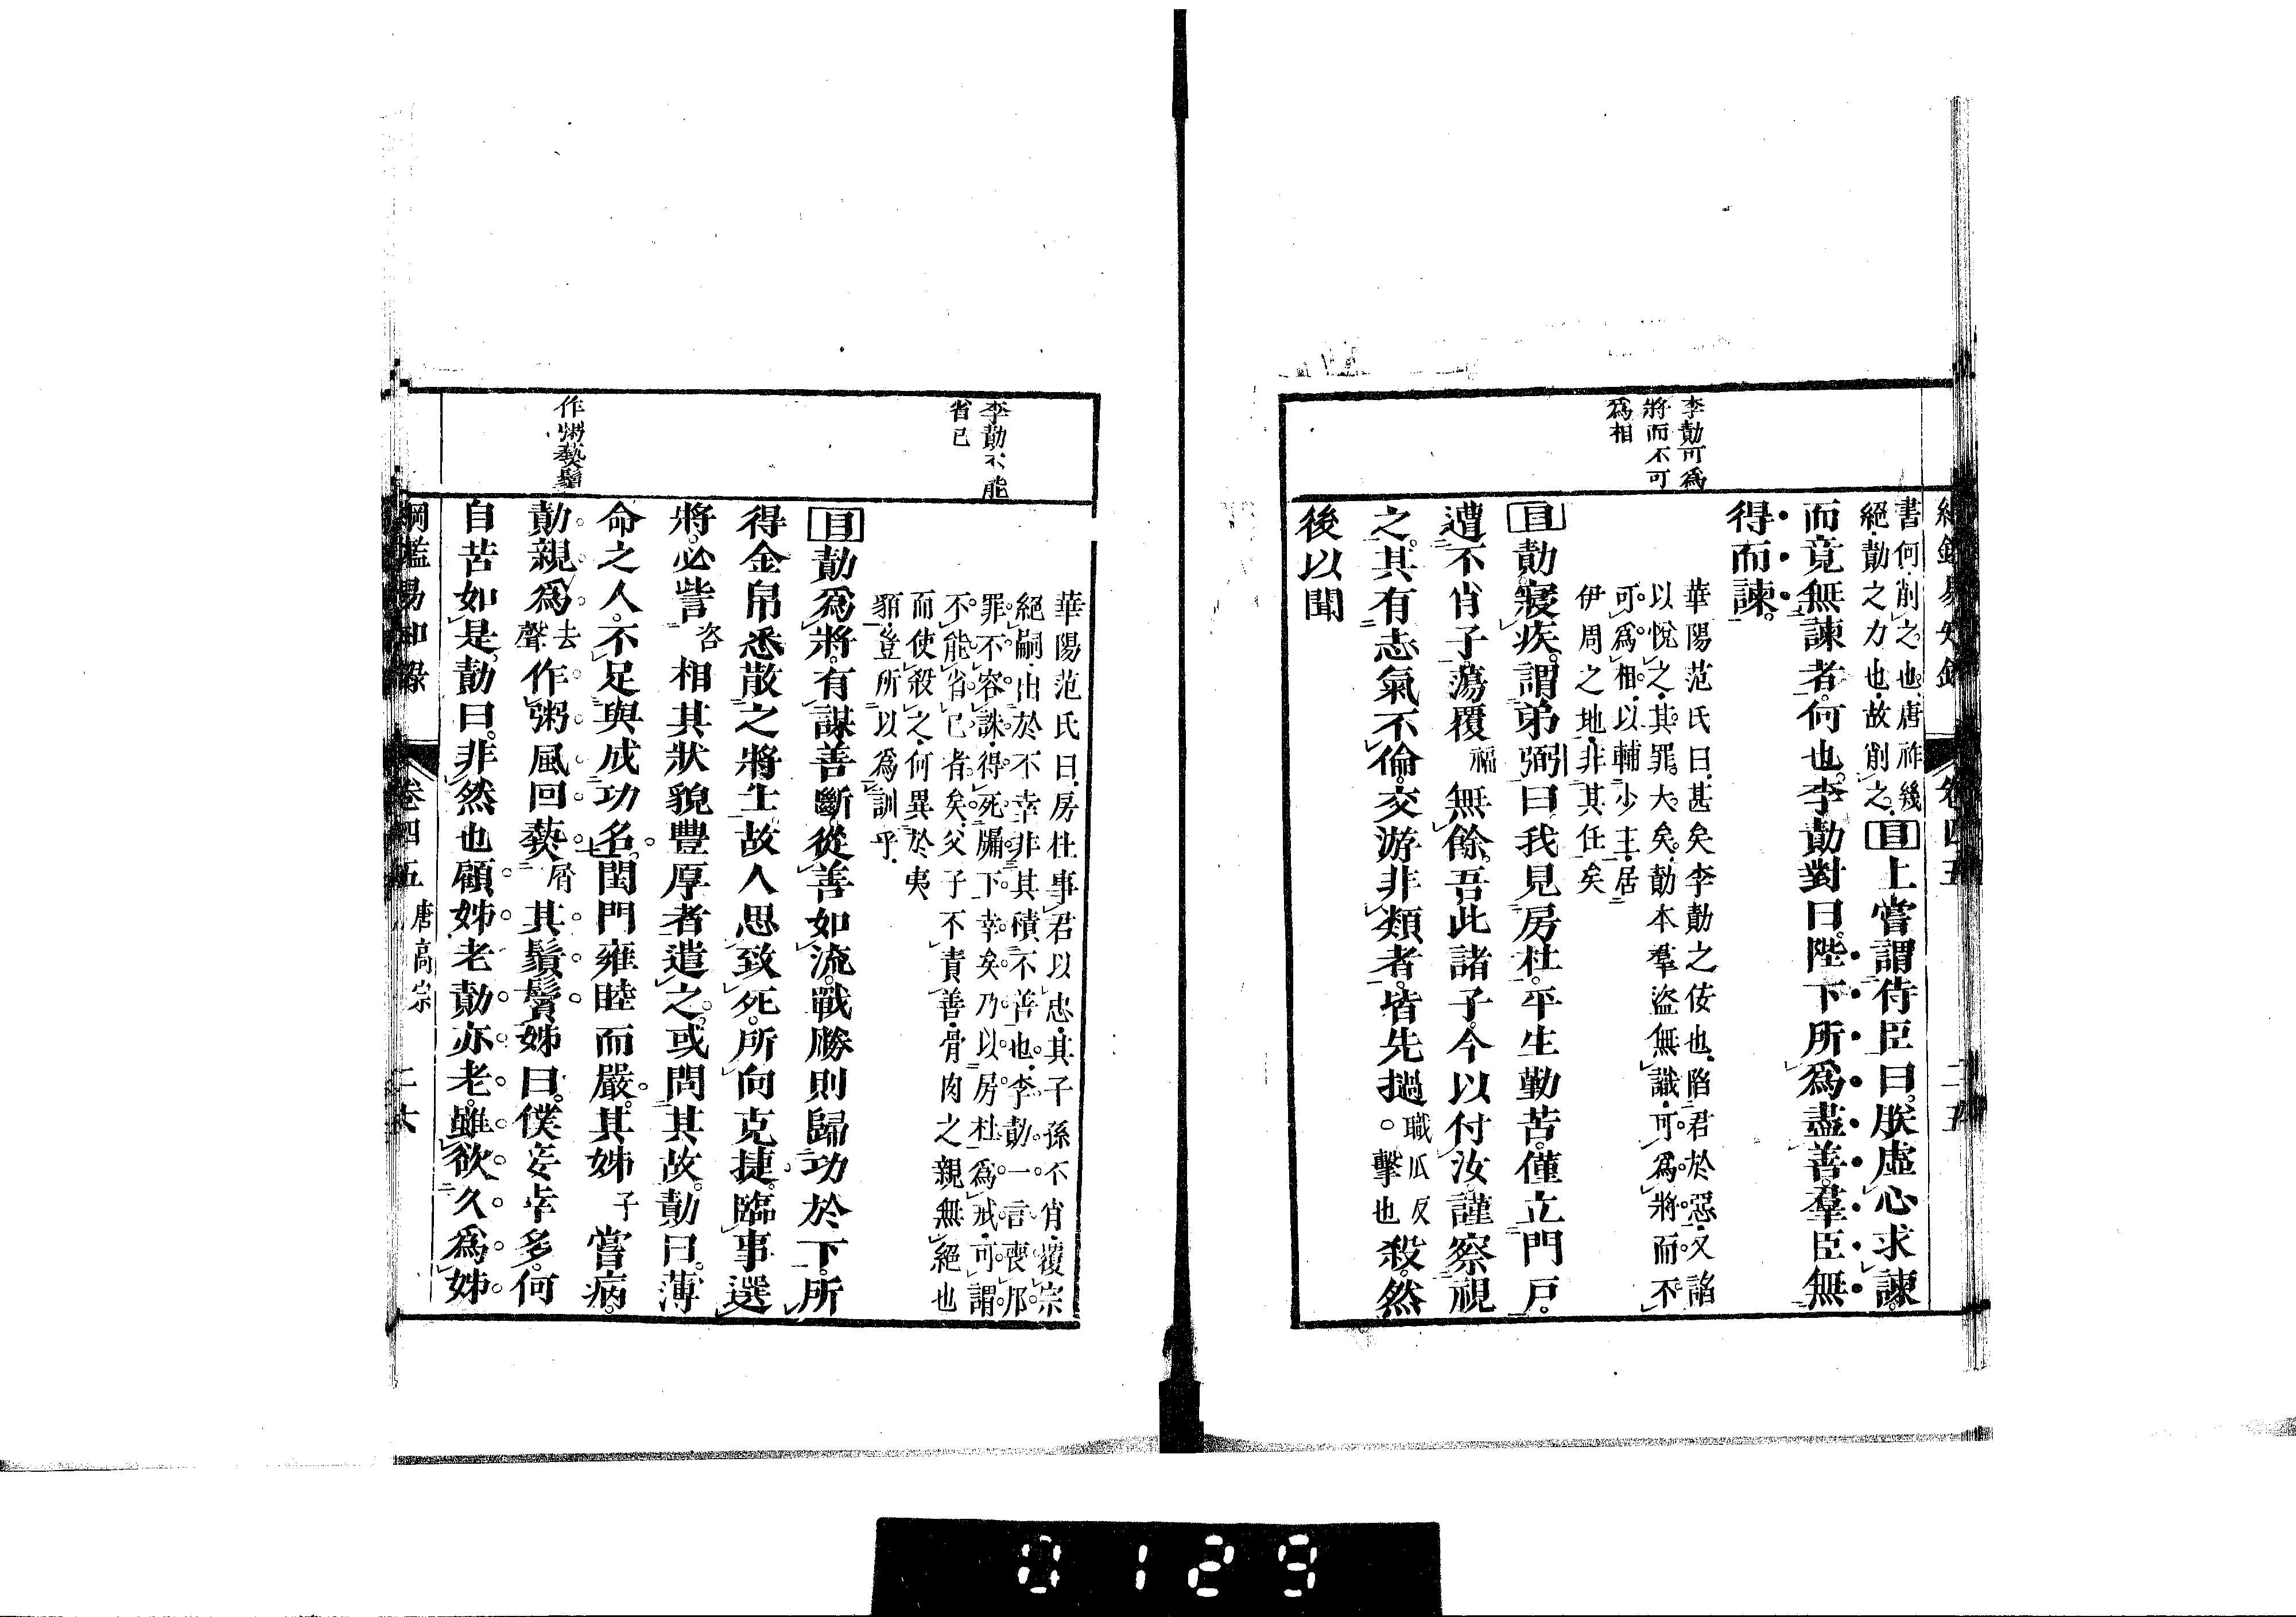 綱鑑易知錄 卷四五 二五
李勣可爲
將而不可
爲相
書何削之也唐祚幾
絕勣之力也故削之
目上嘗謂侍臣曰朕虛心求諫
而竟無諫者何也李勣對曰陛下所爲盡善羣臣無
得而諫
華陽范氏曰甚矣李勣之佞也陷君於惡又諂
以悅之其罪大矣勣本羣盜無識可爲將而不
可爲相以輔少主居
伊周之地非其任矣
目勣寢疾謂弟弼曰我見房杜平生勤苦僅立門戸
遭不肖子蕩覆福無餘吾此諸子今以付汝謹察視
之其有志氣不倫交游非類者皆先撾職瓜反擊也殺然
後以聞
李勣不能
省己
華陽范氏曰房杜事君以忠其子孫不肖覆宗
絕嗣由於不幸非其積不善也李勣一言喪邦
罪不容誅得死牖下幸矣乃以房杜爲戒可謂
不能省己者矣父子不責善骨肉之親無絕也
而使殺之何異於夷
貊豈所以爲訓乎
目勣爲將有謀善斷從善如流戰勝則歸功於下所
得金帛悉散之將士故人思致死所向克捷臨事選
將必訾咨相其狀貌豐厚者遣之或問其故勣曰薄
命之人不足與成功名閨門雍睦而嚴其姊子嘗病
作粥爇鬚
勣親爲去聲作粥風回爇屑其鬚鬢姊曰僕妾幸多何
自苦如是勣曰非然也顧姊老勣亦老雖欲久爲姊
綱鑑易知錄 卷四五 唐高宗 二六
0129